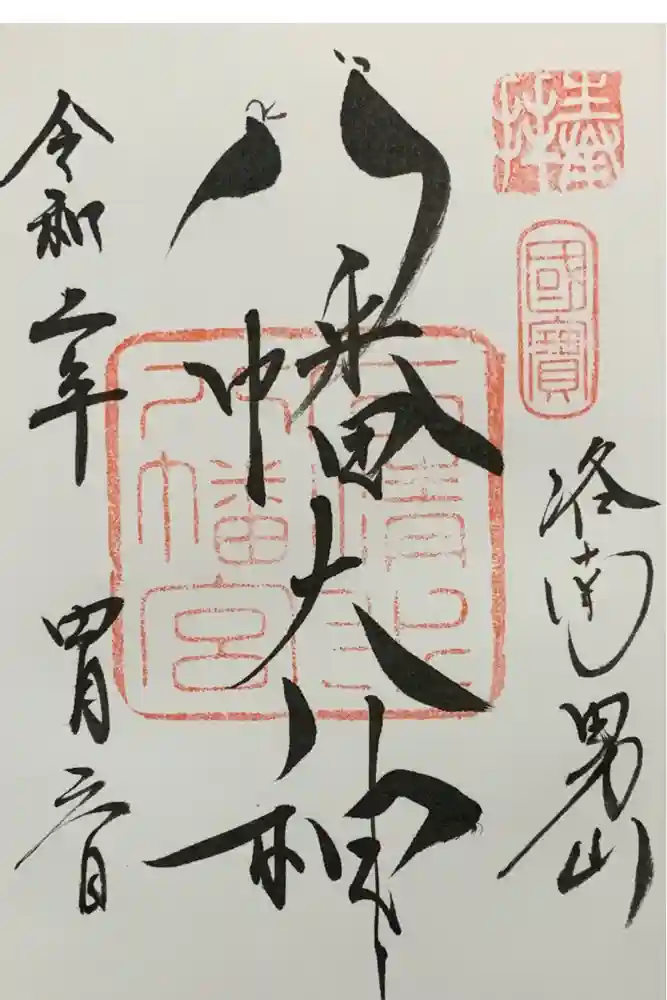 奉拝
國寶
洛南男山
八幡大神
石清水八幡宮
令和二年
四月六日